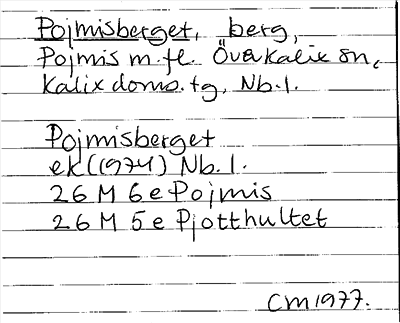 Pojmisberget, berg,
Pojmis m.fl. Överkalix sn,
Kalix doms.tg, Nb.l.
Pojmisberget
ek (1974) Nb.l.
26 M 6e Pojmis
26 M 5e Pjotthultet
CM 1977.